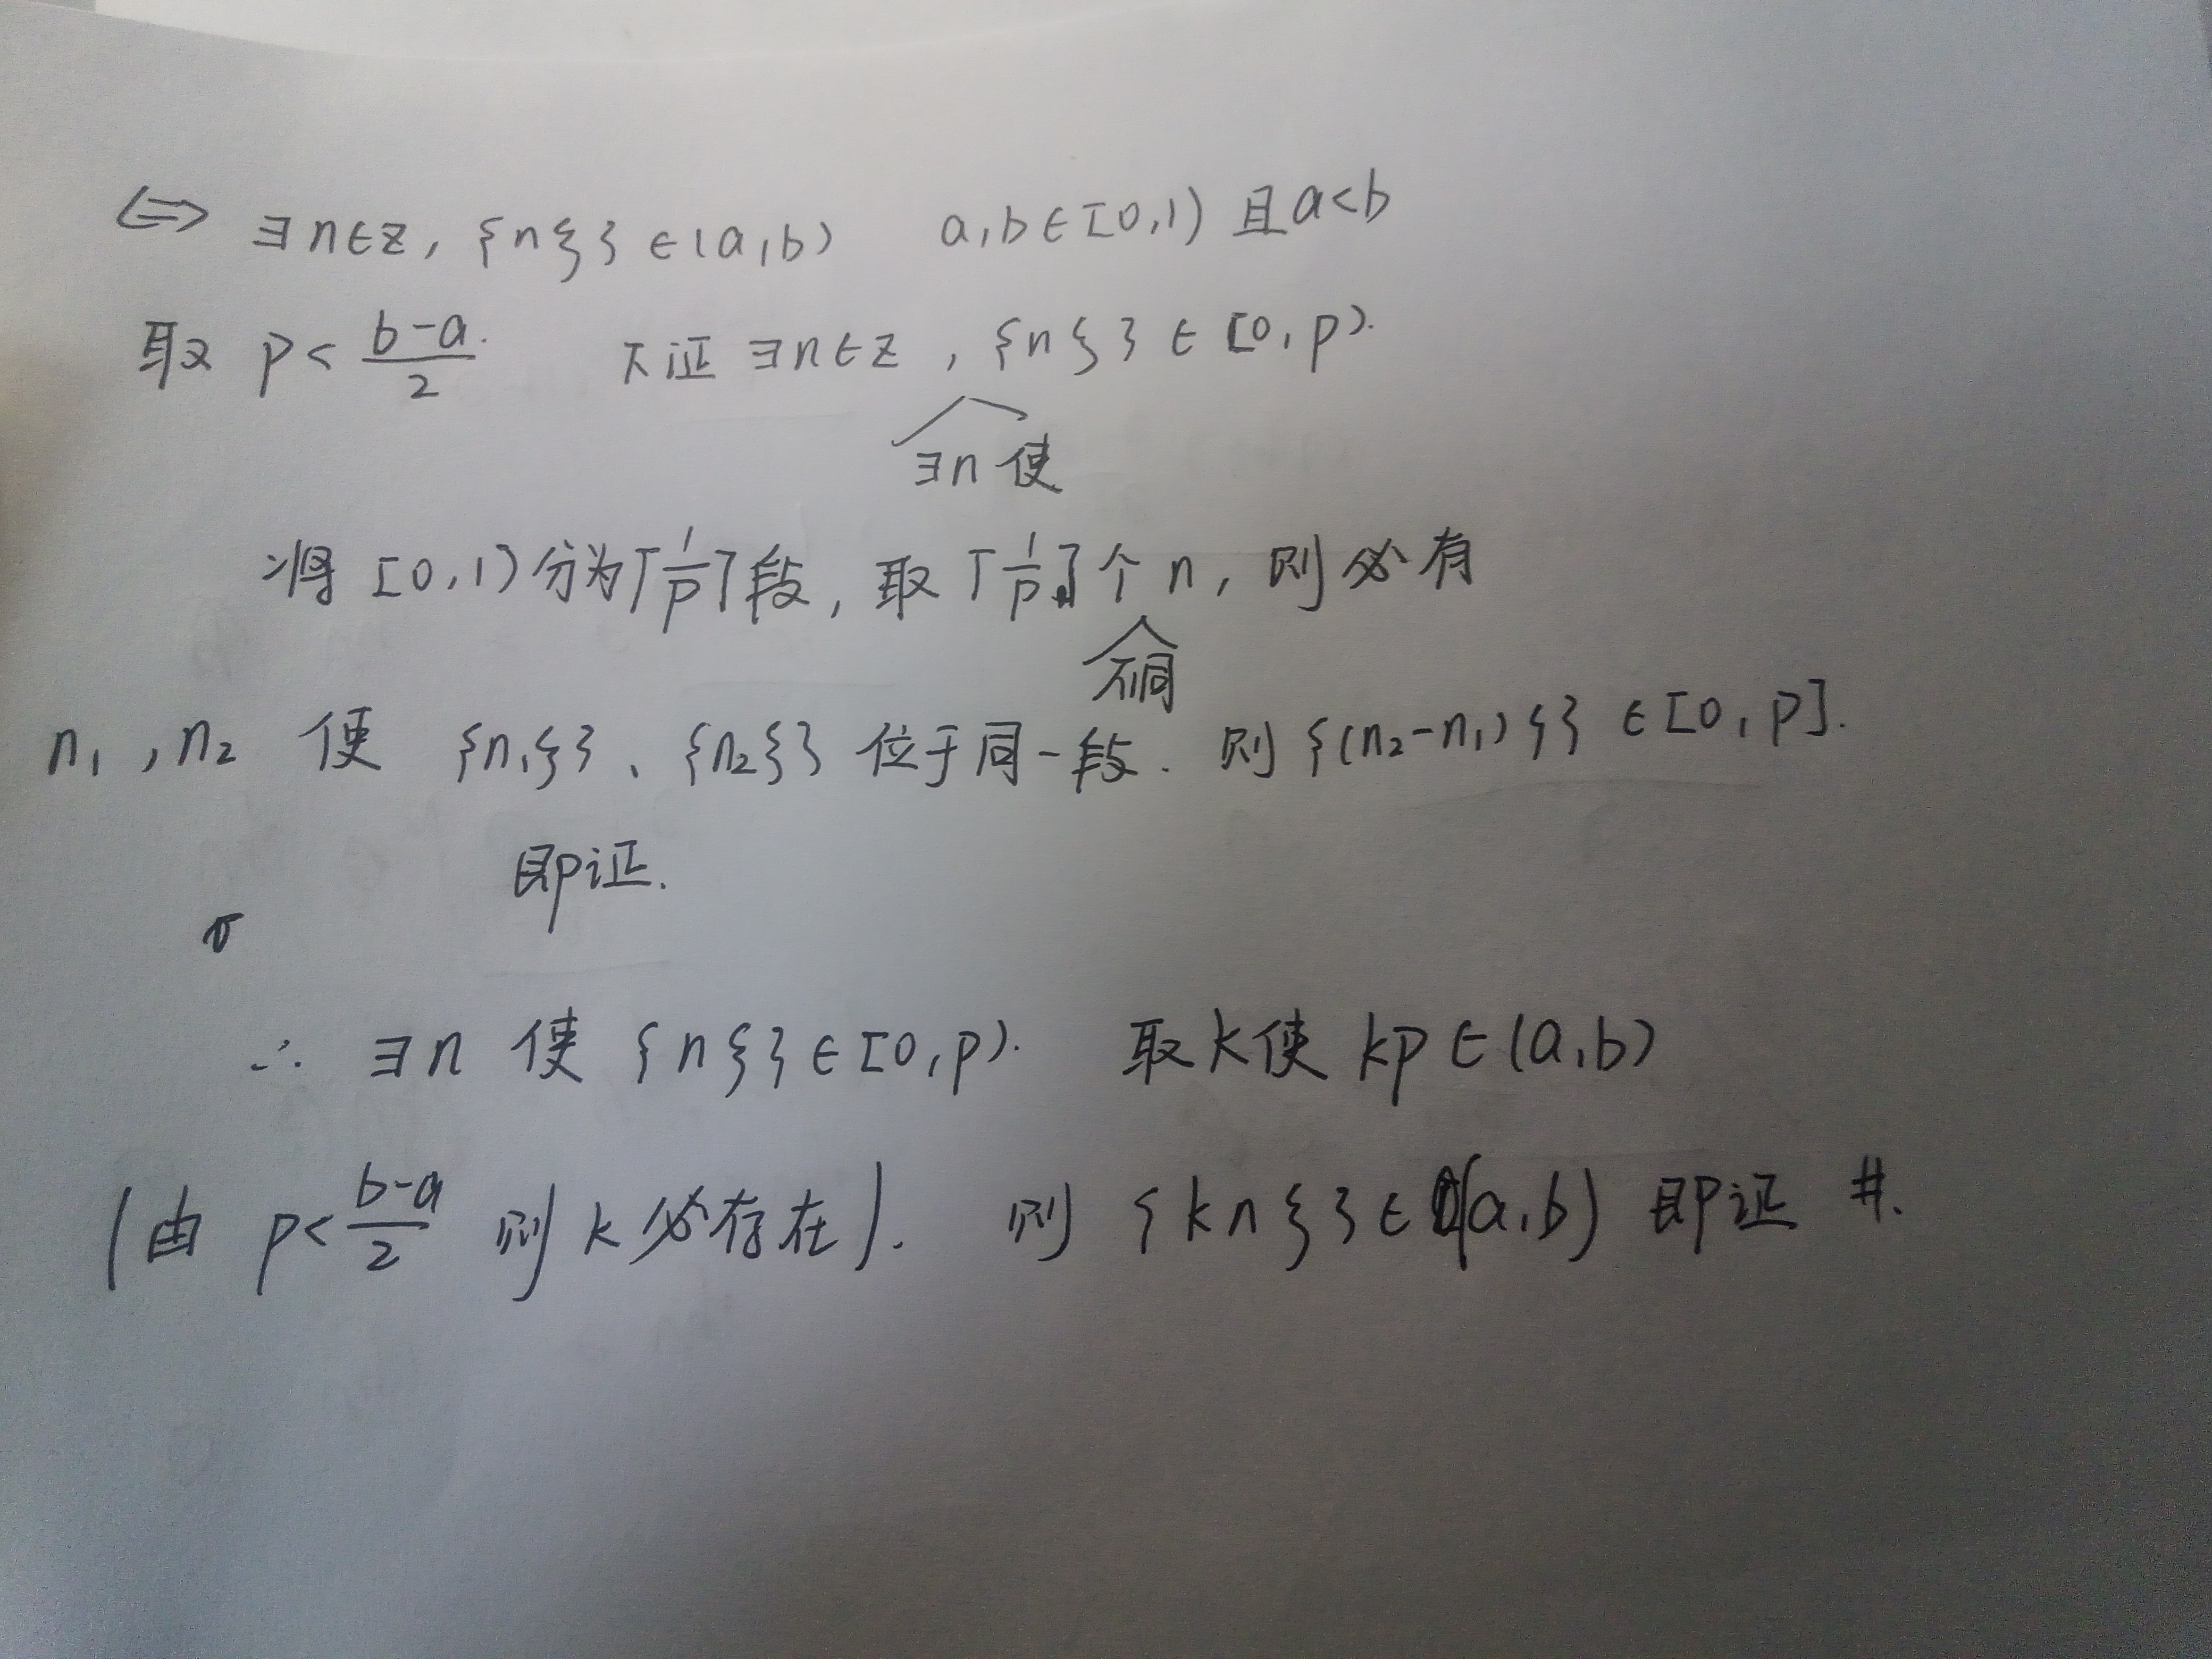 ⇔ ∃n∈Z, {nξ}∈(a,b) a,b∈[0,1) 且a<b
取 p< (b-a)/2. 下证 ∃n∈Z, {nξ}∈[0,p).
∃n 使
将 [0,1)分为⌈1/p⌉段, 取⌈1/p⌉个n, 则必有
不同
n₁,n₂ 使 {n₁ξ}、{n₂ξ}位于同一段. 则{(n₂-n₁)ξ}∈[0,p].
即证.
∴ ∃n 使{nξ}∈[0,p). 取k使 kp∈(a,b)
(由 p< (b-a)/2 则k必存在). 则 {knξ}∈(a,b) 即证 #.